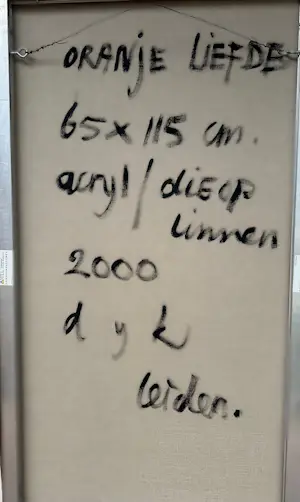 ORANJE LIEFDE
65 x 115 cm.
acryl / diEcp
linnen
2000
d y k
leiden.